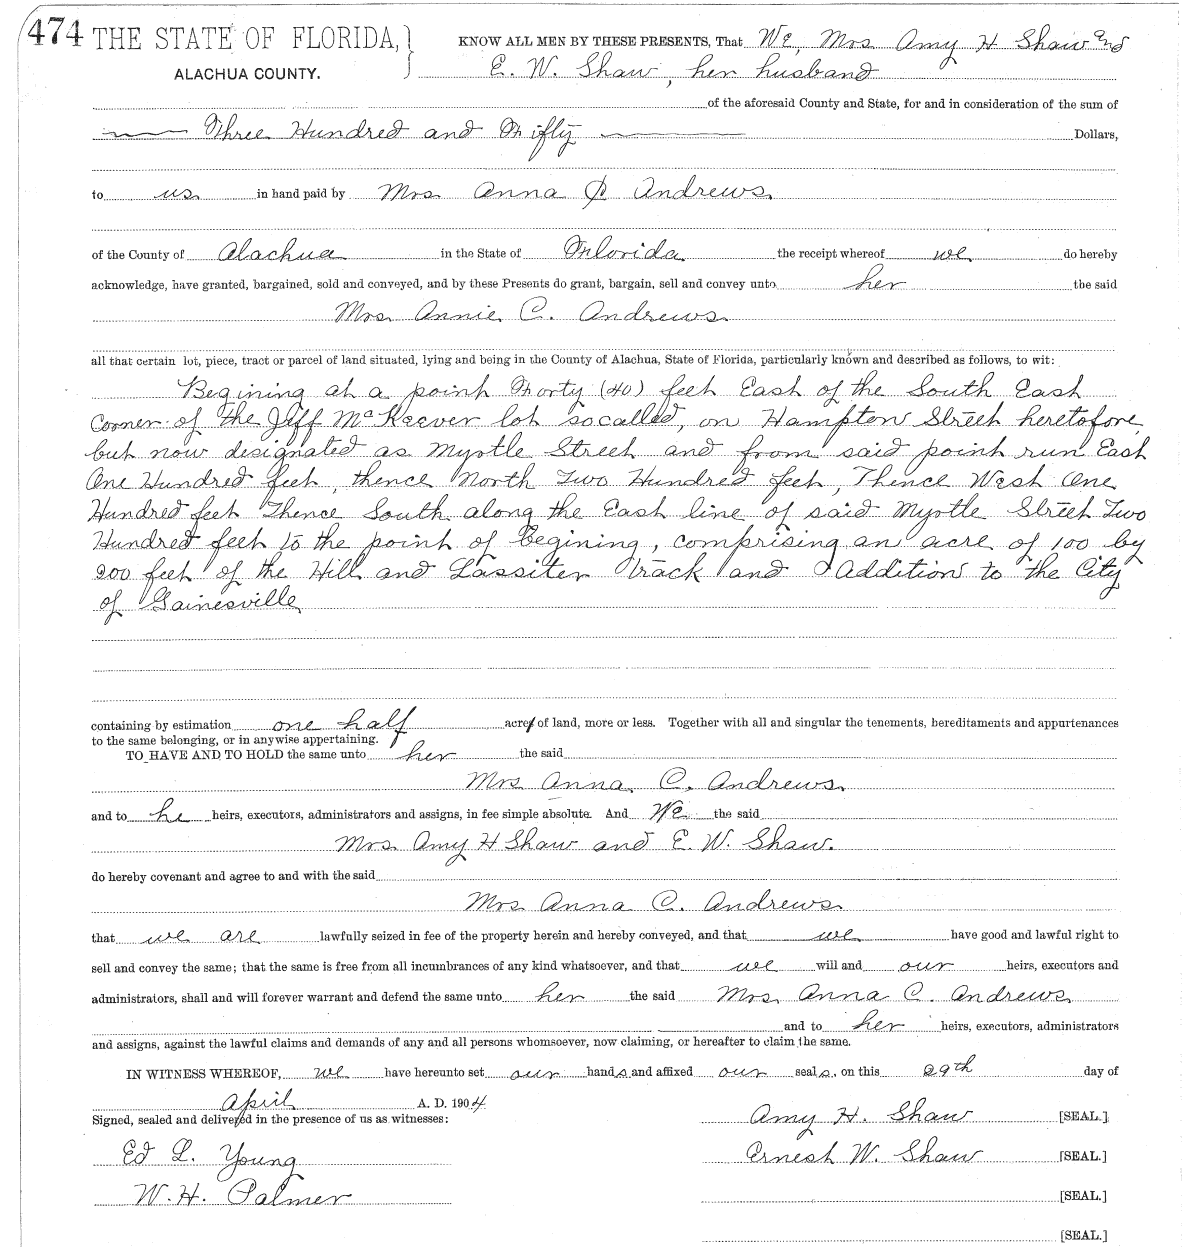 474 THE STATE OF FLORIDA, } KNOW ALL MEN BY THESE PRESENTS, That We, Mrs Amy H Shaw and
ALACHUA COUNTY. E. W. Shaw, her husband
of the aforesaid County and State, for and in consideration of the sum of
Three Hundred and Fifty Dollars,
to us in hand paid by Mrs. Anna C Andrews.
of the County of Alachua in the State of Florida the receipt whereof we do hereby
acknowledge, have granted, bargained, sold and conveyed, and by these Presents do grant, bargain, sell and convey unto her the said
Mrs. Annie C. Andrews.
all that certain lot, piece, tract or parcel of land situated, lying and being in the County of Alachua, State of Florida, particularly known and described as follows, to wit:
Begining at a point Forty (40) feet East of the South East
Corner of the Jeff McKeever lot so called, on Hampton Street heretofore,
but now designated as Myrtle Street and from said point run East
One Hundred feet, thence North Two Hundred feet, Thence West One
Hundred feet Thence South along the East line of said Myrtle Street Two
Hundred feet to the point of Begining, comprising an acre of 100 by
200 feet of the Hill and Lassiter Track and Addition to the City
of Gainesville
containing by estimation one half acre of land, more or less. Together with all and singular the tenements, hereditaments and appurtenances
to the same belonging, or in anywise appertaining.
TO HAVE AND TO HOLD the same unto her the said
Mrs Anna. C. Andrews.
and to he heirs, executors, administrators and assigns, in fee simple absolute. And We the said
Mrs. Amy H Shaw and E. W. Shaw.
do hereby covenant and agree to and with the said
Mrs Anna C. Andrews.
that we are lawfully seized in fee of the property herein and hereby conveyed, and that we have good and lawful right to
sell and convey the same; that the same is free from all incumbrances of any kind whatsoever, and that we will and our heirs, executors and
administrators, shall and will forever warrant and defend the same unto her the said Mrs. Anna C. Andrews.
and to her heirs, executors, administrators
and assigns, against the lawful claims and demands of any and all persons whomsoever, now claiming, or hereafter to claim the same.
IN WITNESS WHEREOF, we have hereunto set our hands and affixed our seals, on this 29th day of
April A. D. 1904
Signed, sealed and delivered in the presence of us as witnesses: Amy H. Shaw [SEAL.]
Ed L. Young Ernest W. Shaw [SEAL.]
W. H. Palmer [SEAL.]
[SEAL.]